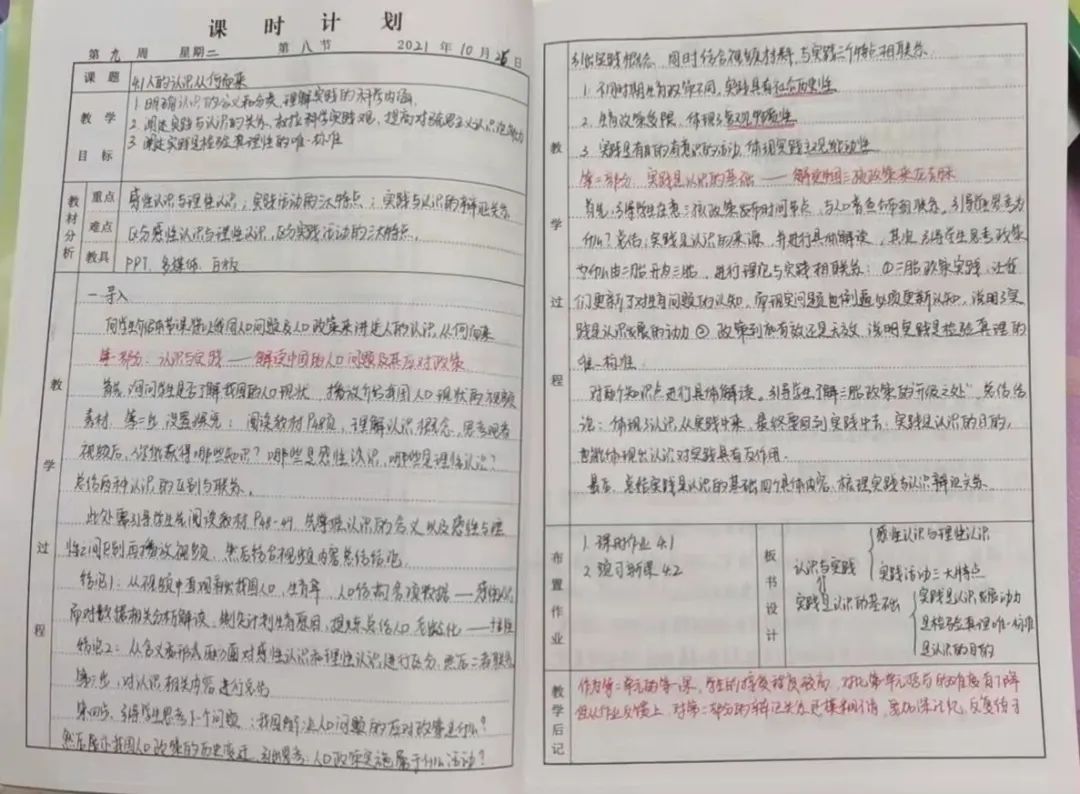 课时计划
第九周 星期二 第八节 2021年10月26日
课题 4.1人的认识从何而来
教学目标
1. 明确认识的含义和分类,理解实践的
2. 阐述实践与认识的关系,树立科学实践观,提高对
3. 阐述实践是检验真理性的唯一标准
教材分析
重点 感性认识与理性认识;实践活动的三大特点;实践与认识的辩证关系
难点 区分感性认识与理性认识,区分实践活动的三大特点。
教具 PPT、多媒体、白板
教学过程
一导入
向学生介绍本节课将以我国人口问题及人口政策来讲述人的认识从何而来
第一部分:认识与实践——解读中国的人口问题及其应对政策
首先,询问学生是否了解我国的人口现状,播放介绍我国人口现状的视频
素材。第二步,设置探究:阅读教材P48页,理解认识概念,思考观看
视频后,你能获得哪些知识?哪些是感性认识,哪些是理性认识?
总结两种认识的区别与联系。
此处要引导学生先阅读教材P48-49,先掌握认识的含义以及感性与理
性之间区别再播放视频,然后结合视频内容总结结论。
结论1:从视频中直观看出我国人口、生育率、人口结构各项数据——感性认识
而对数据相关分析解读、制定计划生育原因、提炼总结人口老龄化——理性
结论2:从含义和形式方面对感性认识和理性认识进行区分,然后二者联系
第三步,对认识相关内容进行总结
第四步,引导学生思考下个问题:我国解决人口问题的应对政策是什么?
然后展示我国人口政策的历史变迁,引出思考:人口政策实施属于什么活动?
教学过程
引出实践概念,同时结合视频材料,与实践三个特点相联系。
1. 不同时期生育政策不同,实践具有社会历史性
2. 生育政策发展,体现客观物质性
3. 实践是有目的有意识的活动,体现实践主观能动性
第二部分:实践是认识的基础——解读中国三孩政策来龙去脉
首先,引导学生注意三孩政策颁布时间节点,与人口普查公布的联系。引导学生思考为
什么?总结:实践是认识的来源,并进行具体解读,其次,引导学生思考政策
为何由二胎开向三胎,进行理论与实践相联系:①二胎政策实践,让我
们更新了对生育问题的认知,而现实问题也倒逼必须更新认知,说明了实
践是认识发展的动力②政策到底有效还是无效,说明实践是检验真理的
唯一标准。
对两个知识点进行具体解读。引导学生了解三胎政策的“升级之处”,总结结
论:体现了认识从实践中来,最终要回到实践中去;实践是认识的目的,
也能体现出认识对实践具有反作用。
最后,总结实践是认识的基础四个具体内容,梳理实践与认识辩证关系。
布置作业
1. 课时作业 4.1
2. 预习新课 4.2
板书设计
认识与实践 感性认识与理性认识
实践活动三大特点
实践是认识的基础 实践是认识发展动力
是检验真理唯一标准
是认识的目的
教学后记
作为第二单元的第一课,学生的接受程度较高,对比第一单元哲学的难度有下降
但从作业反馈上,对第二部分的辩证关系还模糊不清,要加深记忆,反复练习